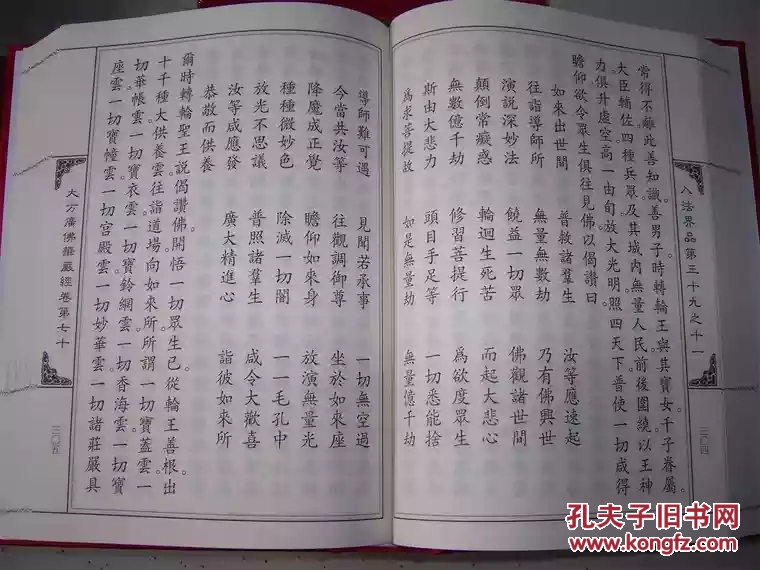 入法界品第三十九之十一
三〇四
常得不離此善知識。善男子。時轉輪王。與其寶女。千子眷屬。
大臣輔佐。四種兵眾。及其城內無量人民。前後圍繞。以王神
力。俱升虛空。高一由旬。放大光明。照四天下。普使一切咸得
瞻仰。欲令眾生俱往見佛。以偈讚曰。
如來出世間 普救諸羣生 汝等應速起
往詣導師所 無量無數劫 乃有佛興世
演說深妙法 饒益一切眾 佛觀諸世間
顛倒常癡惑 輪迴生死苦 而起大悲心
無數億千劫 修習菩提行 為欲度眾生
斯由大悲力 頭目手足等 一切悉能捨
為求菩提故 如是無量劫 無量億千劫
導師難可遇 見聞若承事 一切無空過
今當共汝等 往觀調御尊 坐於如來座
降魔成正覺 瞻仰如來身 放演無量光
種種微妙色 除滅一切闇 一一毛孔中
放光不思議 普照諸羣生 咸令大歡喜
汝等咸應發 廣大精進心 詣彼如來所
恭敬而供養
爾時轉輪聖王。說偈讚佛。開悟一切眾生已。從輪王善根。出
十千種大供養雲。往詣道場。向如來所。所謂一切寶蓋雲。一
切華帳雲。一切寶衣雲。一切寶鈴網雲。一切香海雲。一切寶
座雲。一切寶幢雲。一切宮殿雲。一切妙華雲。一切諸莊嚴具
大方廣佛華嚴經卷第七十
三〇五
孔夫子旧书网
www.kongfz.com